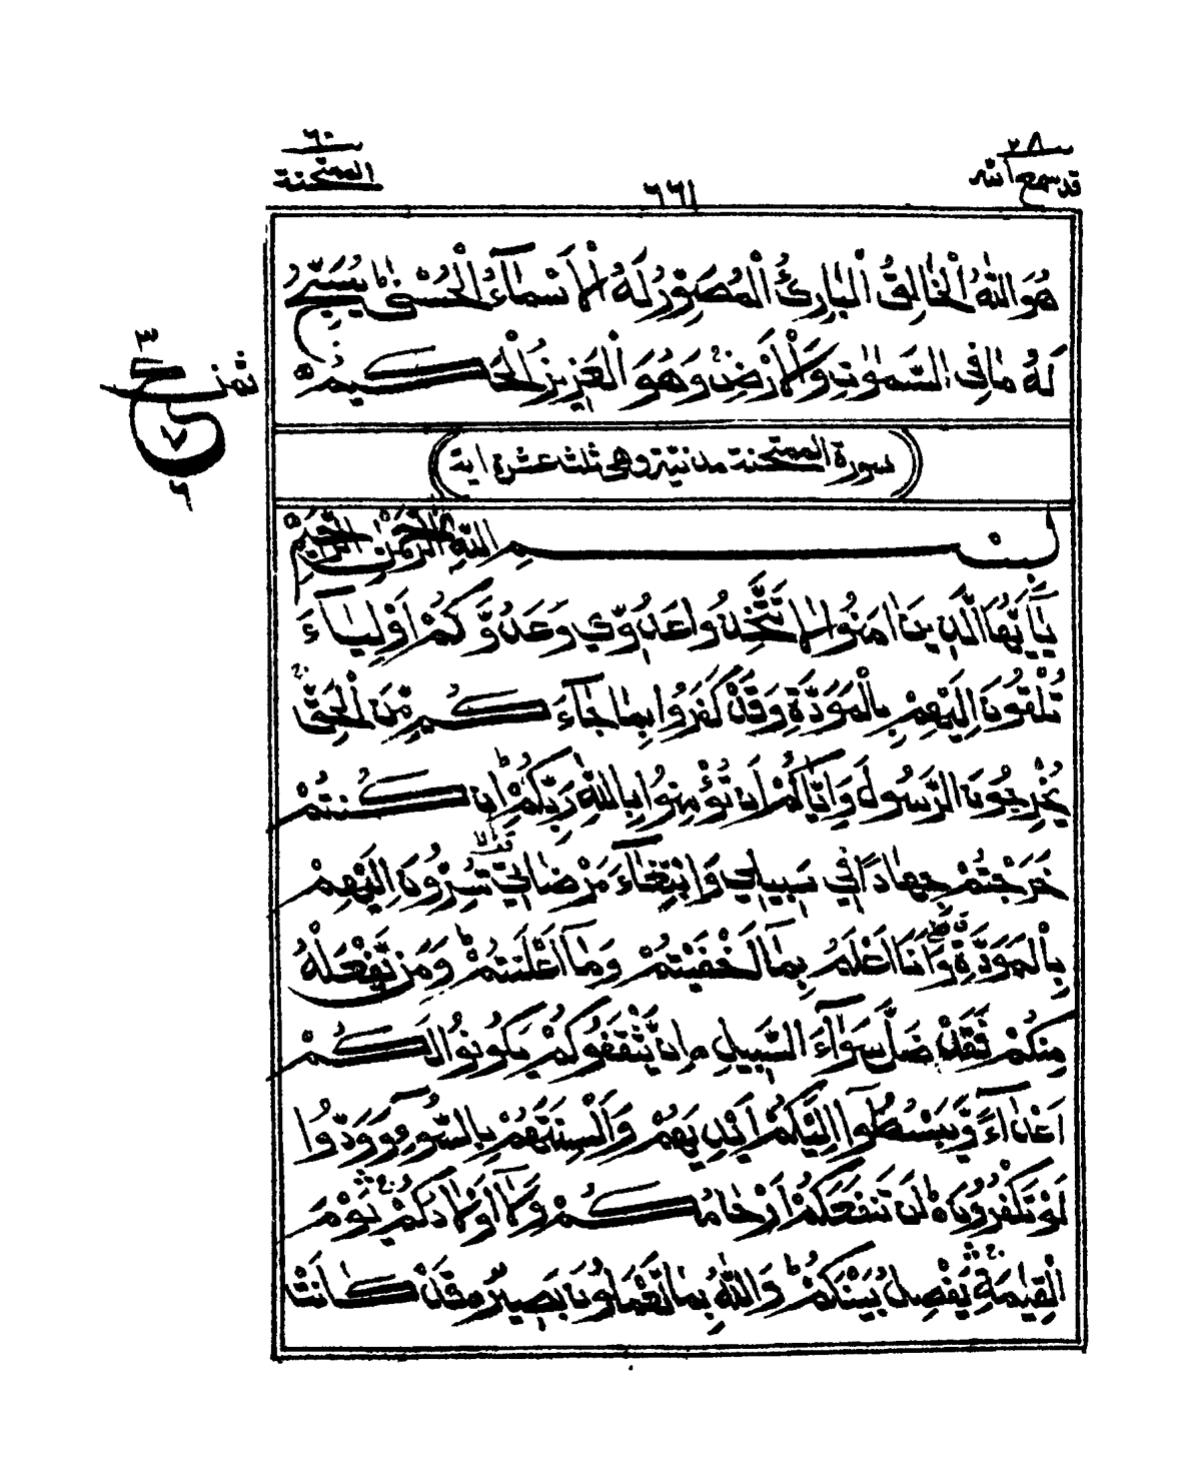 ٢٨
قد سمع الله
٦٦١
٦٠
الممتحنة
هُوَ اللّٰهُ الْخَالِقُ الْبَارِئُ الْمُصَوِّرُ لَهُ الْاَسْمَآءُ الْحُسْنٰى ؕ يُسَبِّحُ
لَهٗ مَا فِى السَّمٰوٰتِ وَالْاَرْضِ ۚ وَهُوَ الْعَزِيْزُ الْحَكِيْمُ
ثمن
٣
ع
٧
٦
سورة الممتحنة مدنية وهى ثلث عشرة اية
بِسْمِ اللّٰهِ الرَّحْمٰنِ الرَّحِيْمِ
يٰٓاَيُّهَا الَّذِيْنَ اٰمَنُوْا لَا تَتَّخِذُوْا عَدُوِّيْ وَعَدُوَّكُمْ اَوْلِيَآءَ
تُلْقُوْنَ اِلَيْهِمْ بِالْمَوَدَّةِ وَقَدْ كَفَرُوْا بِمَا جَآءَكُمْ مِّنَ الْحَقِّ ۚ
يُخْرِجُوْنَ الرَّسُوْلَ وَاِيَّاكُمْ اَنْ تُؤْمِنُوْا بِاللّٰهِ رَبِّكُمْ ؕ اِنْ كُنْتُمْ
خَرَجْتُمْ جِهَادًا فِيْ سَبِيْلِيْ وَابْتِغَآءَ مَرْضَاتِيْ تُسِرُّوْنَ اِلَيْهِمْ
بِالْمَوَدَّةِ وَاَنَا اَعْلَمُ بِمَآ اَخْفَيْتُمْ وَمَآ اَعْلَنْتُمْ ؕ وَمَنْ يَّفْعَلْهُ
مِنْكُمْ فَقَدْ ضَلَّ سَوَآءَ السَّبِيْلِ اِنْ يَّثْقَفُوْكُمْ يَكُوْنُوْا لَكُمْ
اَعْدَآءً وَّيَبْسُطُوْٓا اِلَيْكُمْ اَيْدِيَهُمْ وَاَلْسِنَتَهُمْ بِالسُّوْٓءِ وَوَدُّوْا
لَوْ تَكْفُرُوْنَ لَنْ تَنْفَعَكُمْ اَرْحَامُكُمْ وَلَآ اَوْلَادُكُمْ ۚ يَوْمَ
الْقِيٰمَةِ ۚ يَفْصِلُ بَيْنَكُمْ ؕ وَاللّٰهُ بِمَا تَعْمَلُوْنَ بَصِيْرٌ قَدْ كَانَتْ